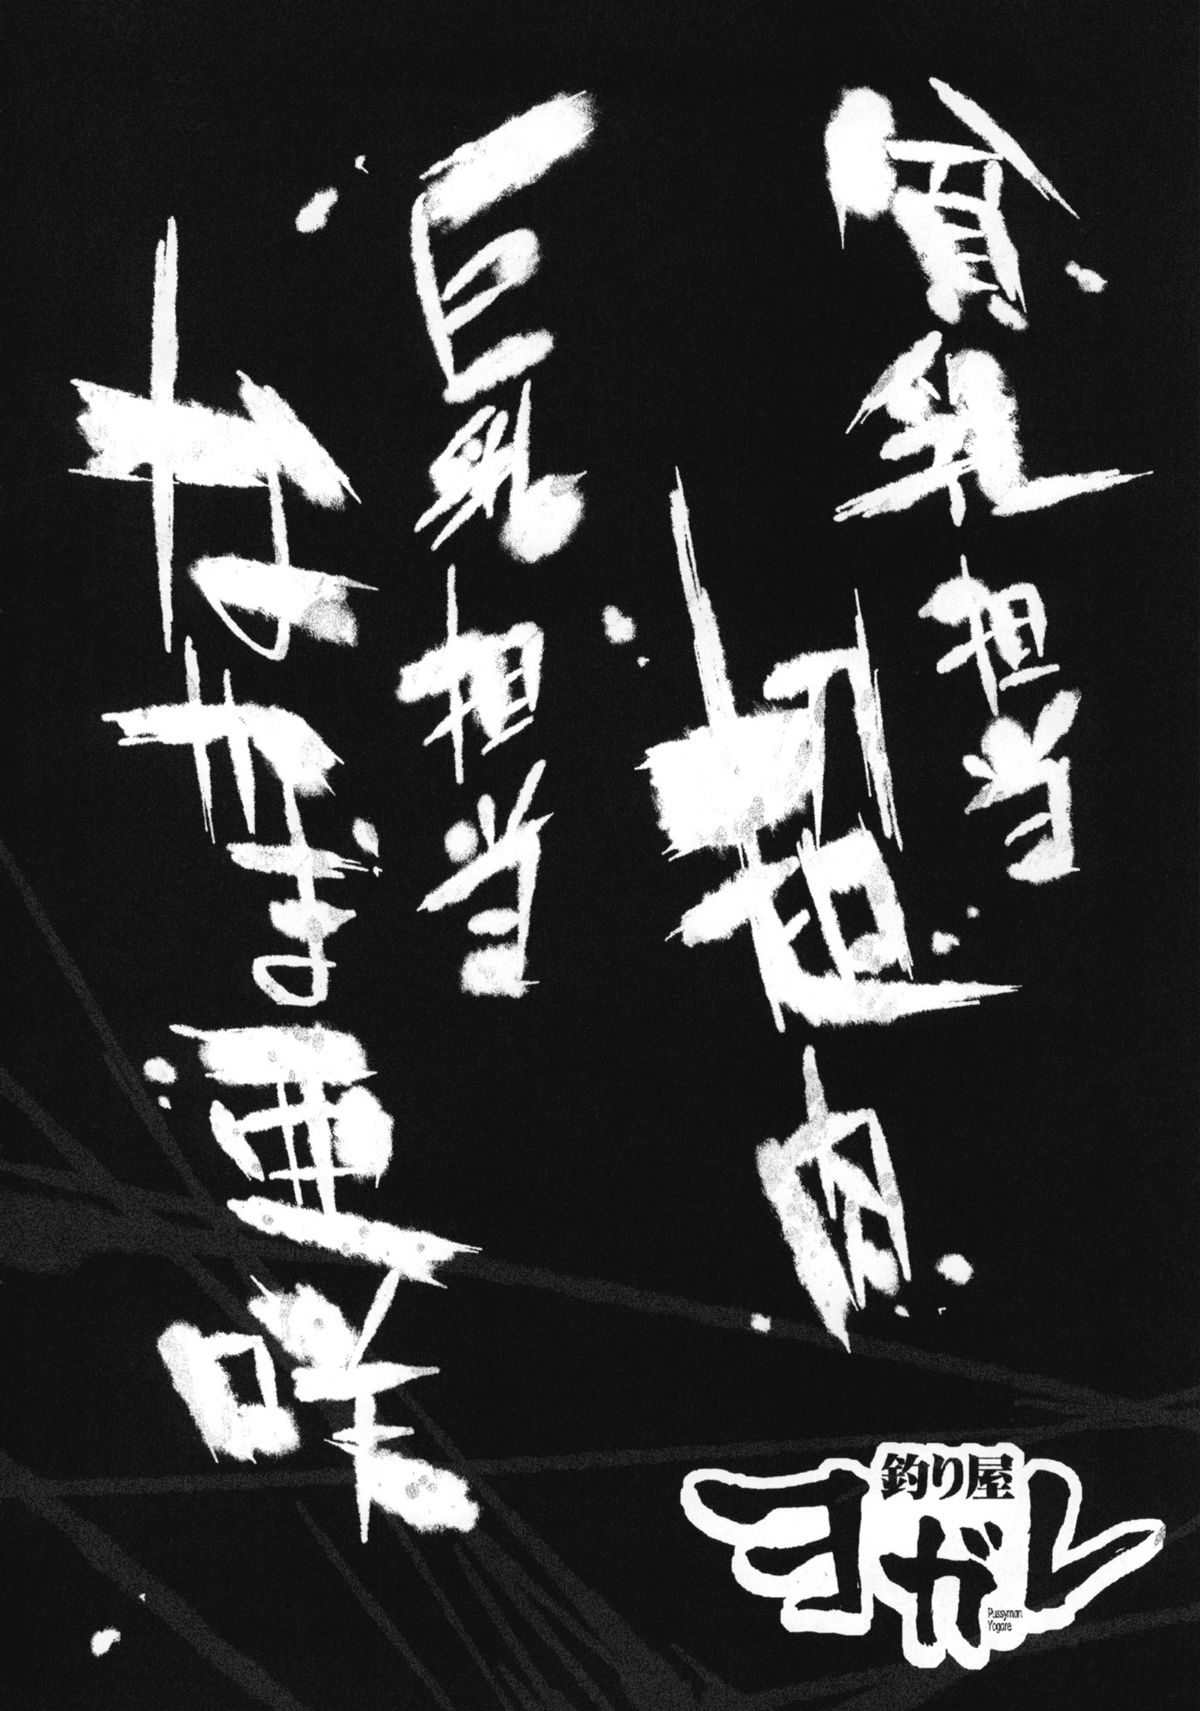 貧乳担当
超肉
巨乳担当
ながま亜咲
釣り屋
ヨガレ
Pussyman
Yogare